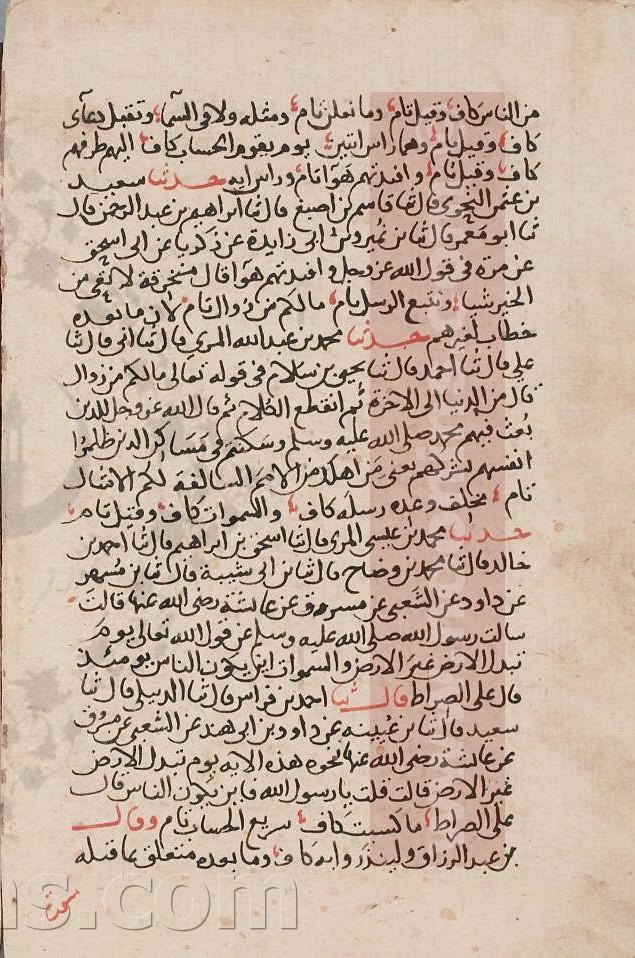 من الناس كاف وقيل تام وما نعلن تام ومثله ولا في السماء وتقبل دعآى
كاف وقيل تام وهما راس ايتين يوم يقوم الحساب كاف اليهم طرفهم
كاف وقيل تام وافئدتهم هوآ تام وراس ايه حدثنا سعيد
بن عثمن النحوى قال ثنا قاسم بن اصبغ قال ثنا ابراهيم بن عبد الرحمن قال
ثنا ابو معمر قال ثنا بن نمير وبن ابى زايدة عن زكريا عن ابى اسحق
عن مرة فى قول الله عز وجل وافئدتهم هوآ قال منخرقة لا تعى من
الخير شيا ونتبع الرسل تام مالكم من زوال تام لان ما بعده
خطاب لغيرهم حدثنا محمد بن عبد الله المرى قال ثنا ابى قال ثنا
على قال ثنا احمد قال ثنا يحيى بن سلام فى قوله تعالى مالكم من زوال
قال من الدنيا الى الاخرة ثم انقطع الكلام ثم قال الله عز وجل للذين
بعث فيهم محمد صلى الله عليه وسلم وسكنتم فى مساكن الذين ظلموا
انفسهم بشركهم يعنى من اهلك من الامم السالفة لكم الامثال
تام مخلف وعده رسله كاف والسموات كاف وقيل تام
حدثنا محمد بن عيسى المرى قال ثنا اسحق بن ابراهيم قال ثنا احمد بن
خالد قال ثنا محمد بن وضاح قال ثنا بن ابى شيبة قال ثنا بن مسهر
عن داود عن الشعبى عن مسروق عن عائشة رضى الله عنها قالت
سالت رسول الله صلى الله عليه وسلم عن قول الله تعالى يوم
تبدل الارض غير الارض والسموات اين يكون الناس يومئذ
قال على الصراط قال ثنا احمد بن فراس قال ثنا الديبلى قال ثنا
سعيد قال ثنا بن عيينه عن داود بن ابى هند عن الشعبى عن مسروق
عن عائشة رضى الله عنها نحوه هذه الايه يوم تبدل الارض
غير الارض قالت قلت يا رسول الله فاين يكون الناس قال
على الصراط ما كسبت كاف سريع الحساب تام وقال
بن عبد الرزاق ولينذروا به كاف وما بعده متعلق بما قبله
ns.com